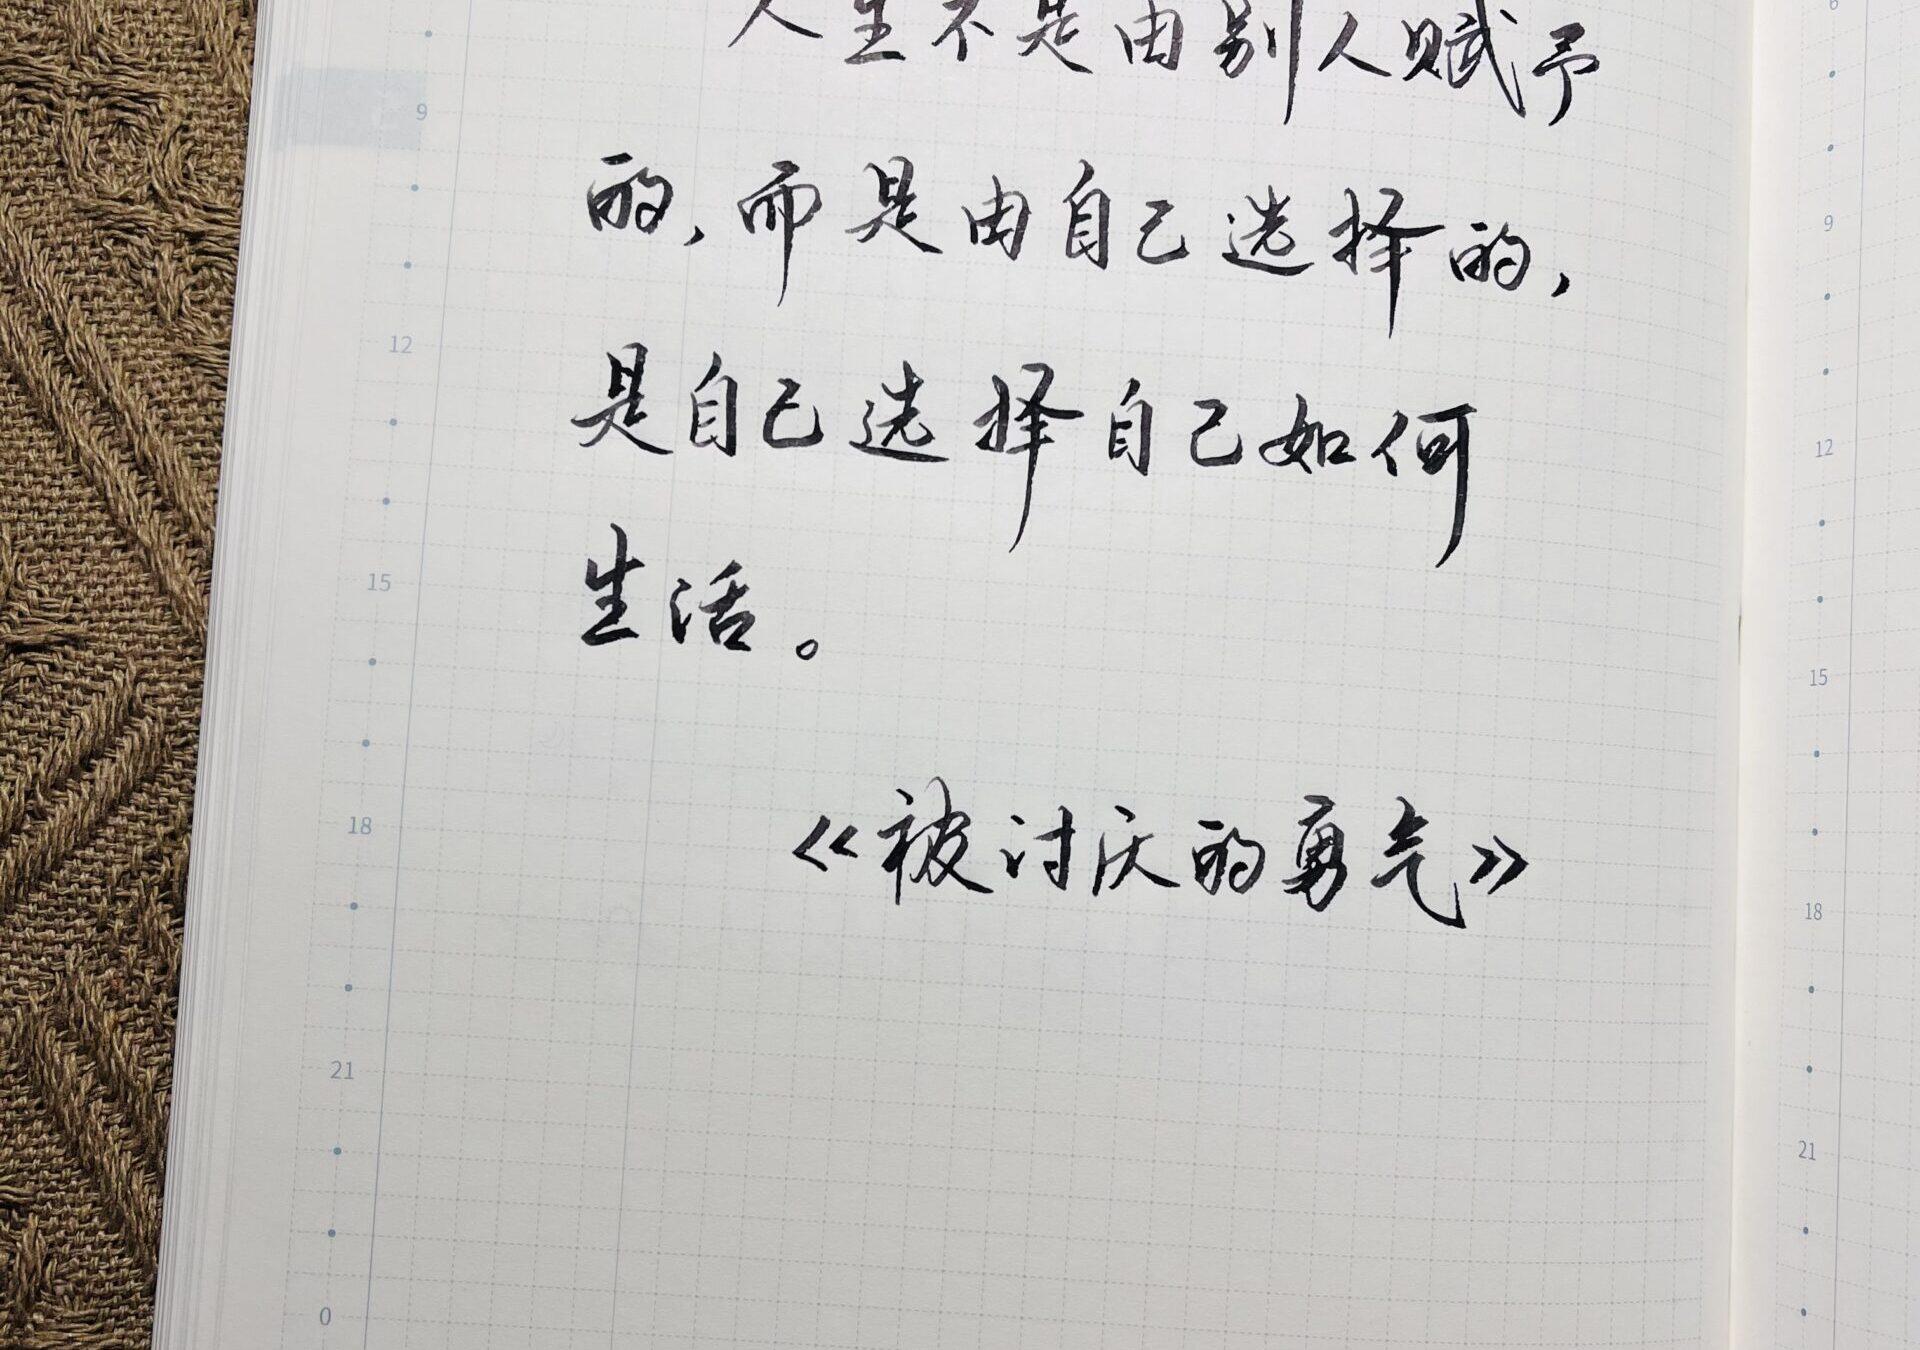 人生不是由别人赋予
的,而是由自己选择的,
是自己选择自己如何
生活。
《被讨厌的勇气》
9
12
15
18
21
0
6
9
12
15
18
21